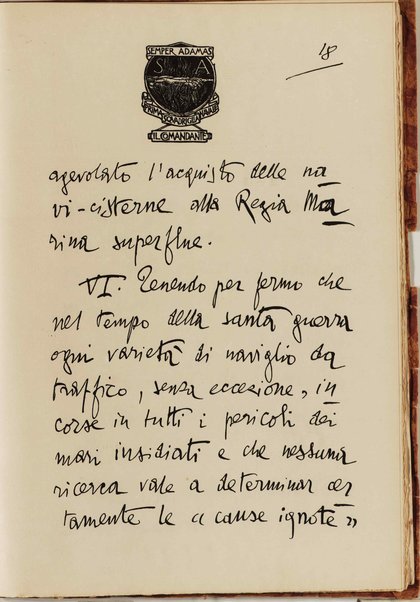 18
SEMPER ADAMAS
S A
IL COMANDANTE
agevolato l'acquisto delle na
vi-cisterne alla Regia Ma
rina superflue.
VI. Tenendo per fermo che
nel tempo della santa guerra
ogni varietà di naviglio da
traffico, senza eccezione, in
corse in tutti i pericoli dei
mari insidiati e che nessuna
ricerca vale a determinar cer
tamente le « cause ignote »